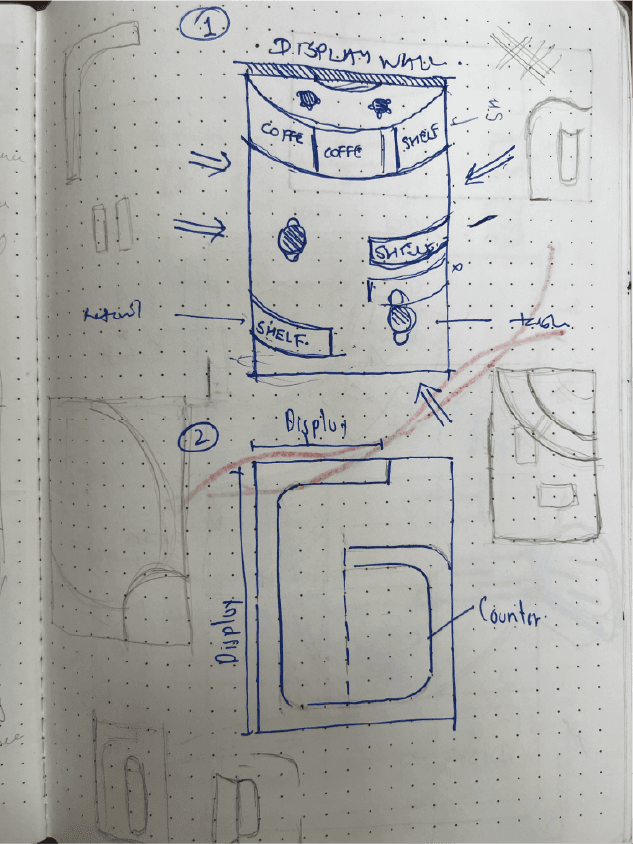 1
DISPLAY WALL
COFFE
COFFE
SHELF
SHELF
SHELF
2
Display
Display
Counter